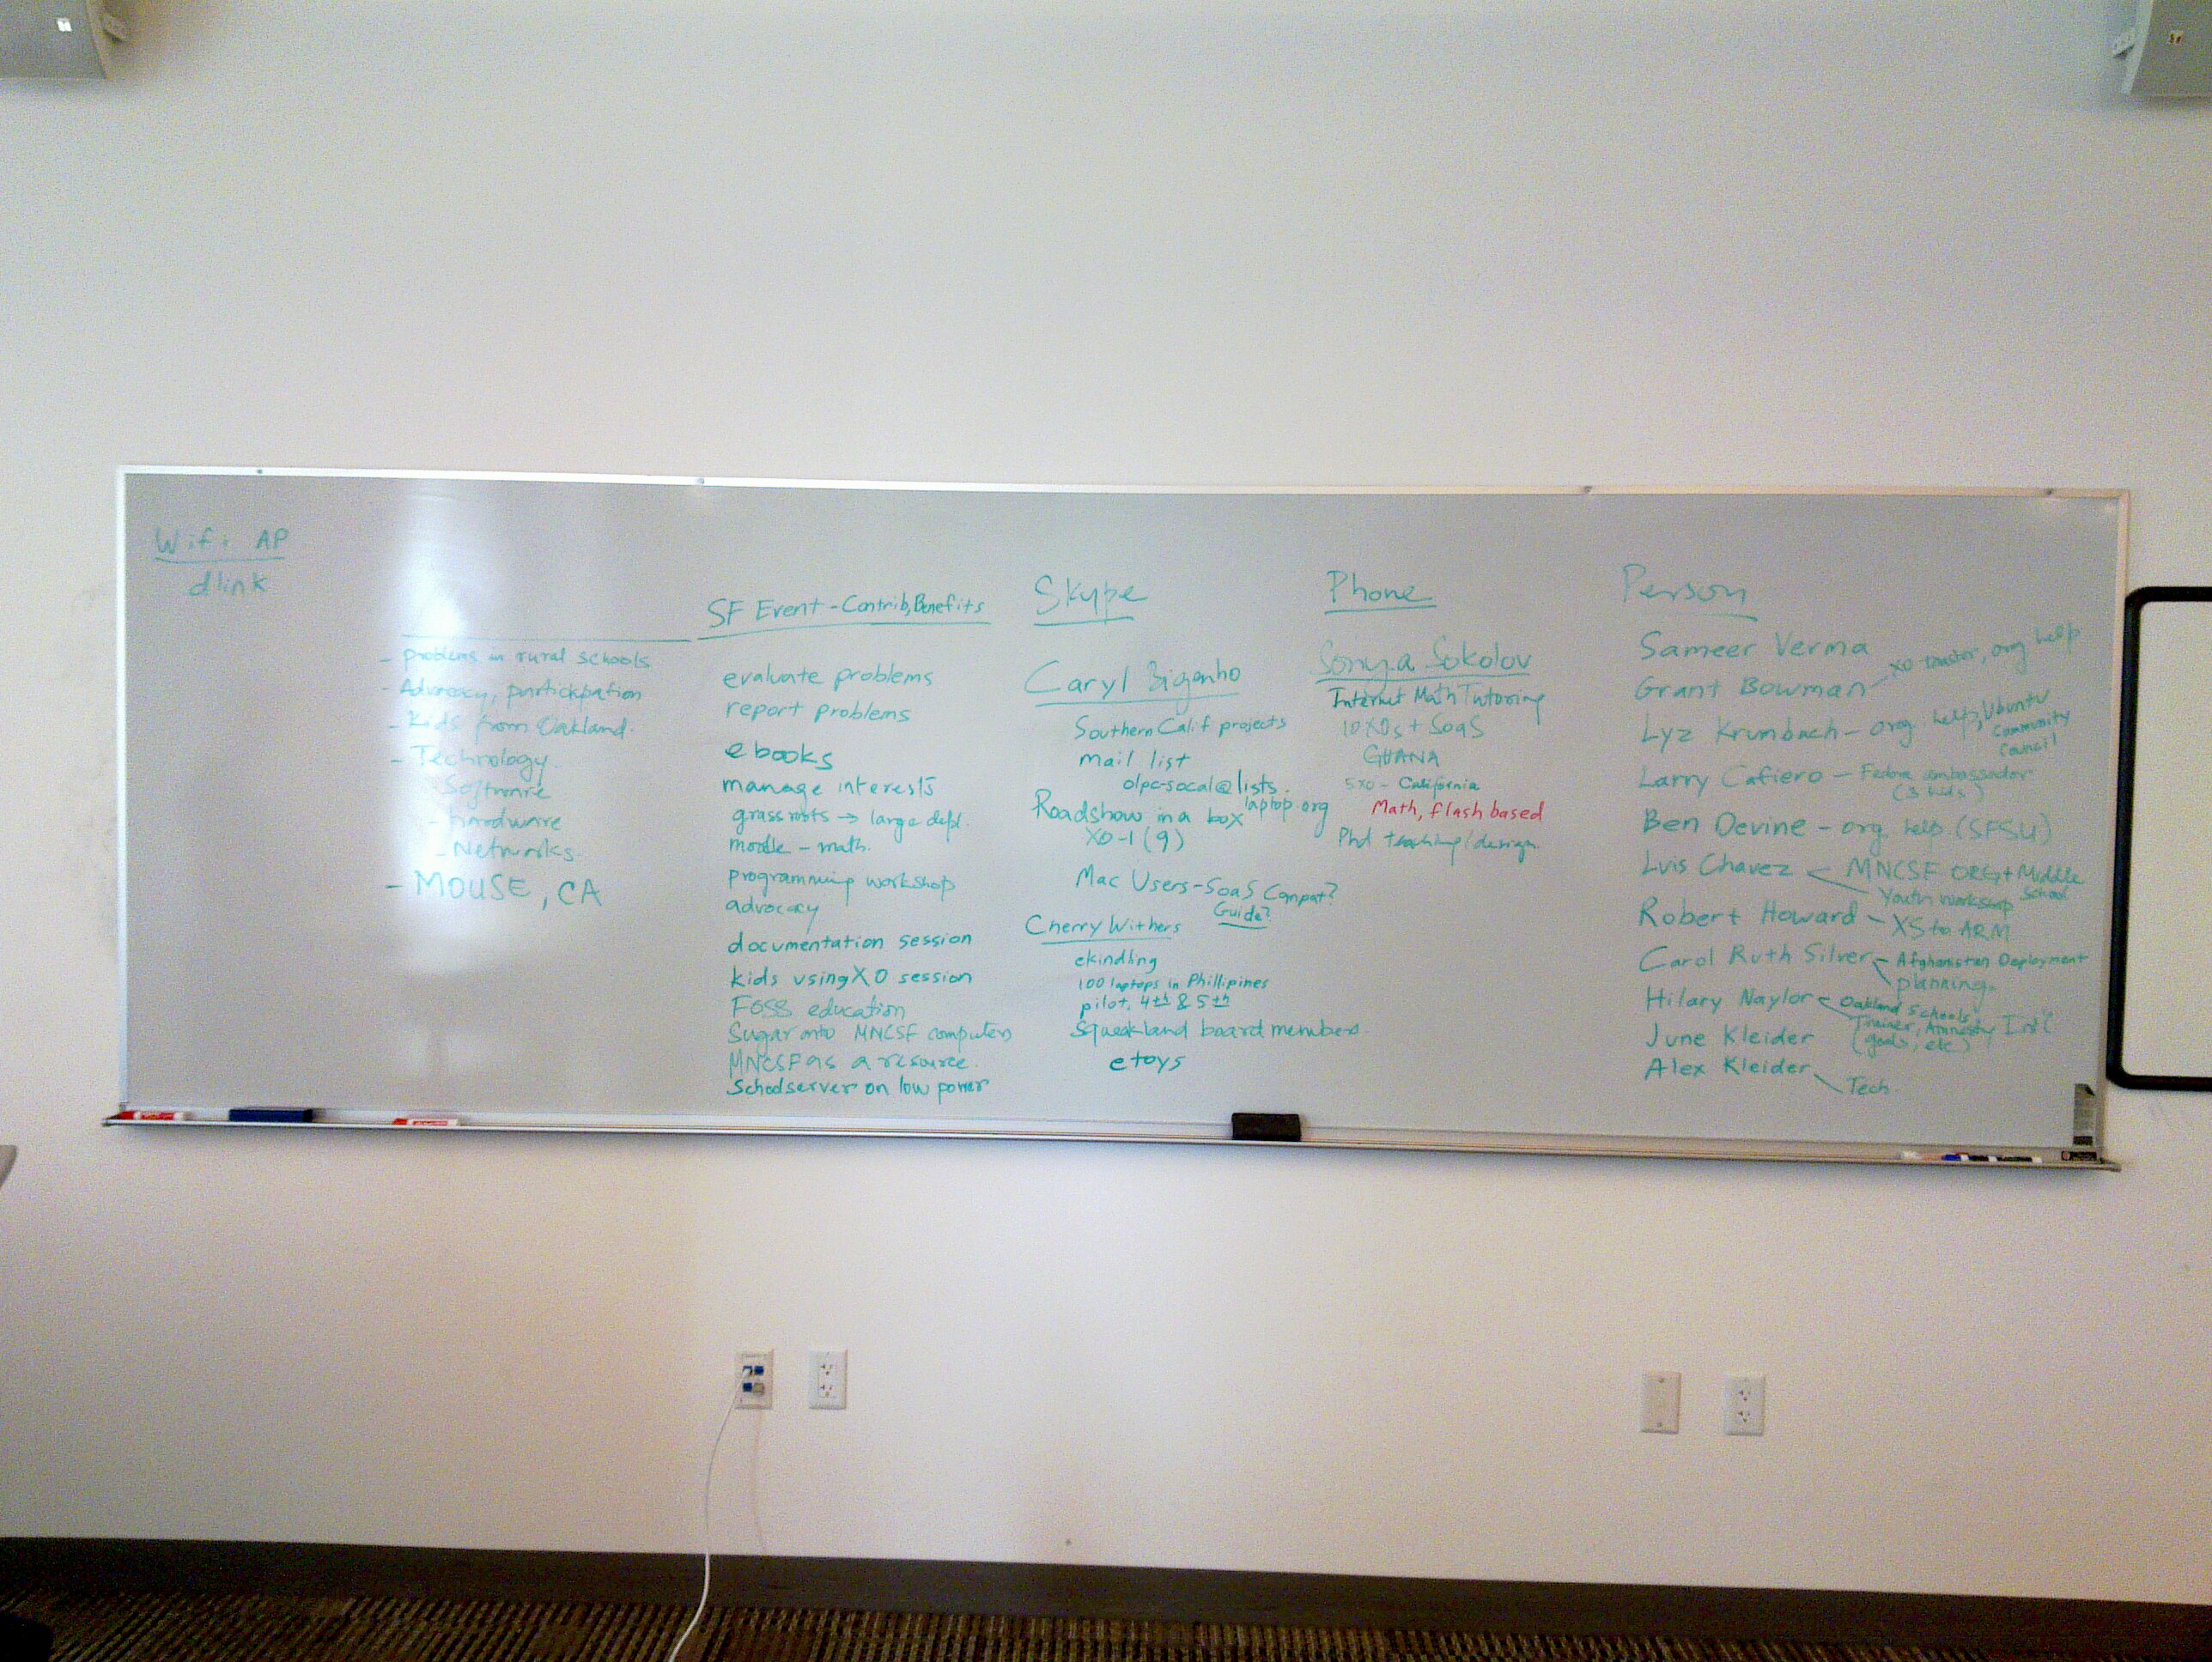 Wifi AP
dlink
- problems in rural schools
- Advocacy, partickpation
- Kids from Oakland.
- Technology.
Software
- hardware
- Networks.
- MOUSE, CA
SF Event - Contrib, Benefits
evaluate problems
report problems
ebooks
manage interests
grassroots → large depl.
moodle - math.
programming workshop
advocacy
documentation session
kids using XO session
FOSS education
Sugar onto MNCSF computers
MNCSF as a resource.
Schoolserver on low power
Skype
Caryl Bigenho
Southern Calif projects
mail list
olpc-socal@lists.
laptop.org
Roadshow in a box
XO-1 (9)
Mac Users - SoaS Compat?
Guide?
Cherry Withers
ekindling
100 laptops in Phillipines
pilot, 4th & 5th
Squeakland board members.
etoys
Phone
Sonya Sokolov
Internet Math Tutoring
10 XOs + SoaS
GHANA
5 XO - California
Math, flash based
Phd teaching/design.
Person
Sameer Verma
Grant Bowman - XO toaster, org help
Lyz Krumbach - org help, Ubuntu
Community
Council
Larry Cafiero - Fedora ambassador
(3 kids)
Ben Devine - org. help (SFSU)
Luis Chavez < MNCSF ORG + Middle
School
Youth Workshop
Robert Howard - XS to ARM
Carol Ruth Silver - Afghanistan Deployment
planning.
Hilary Naylor < Oakland Schools,
Trainer, Amnesty Int'l
(goals, etc)
June Kleider
Alex Kleider
Tech